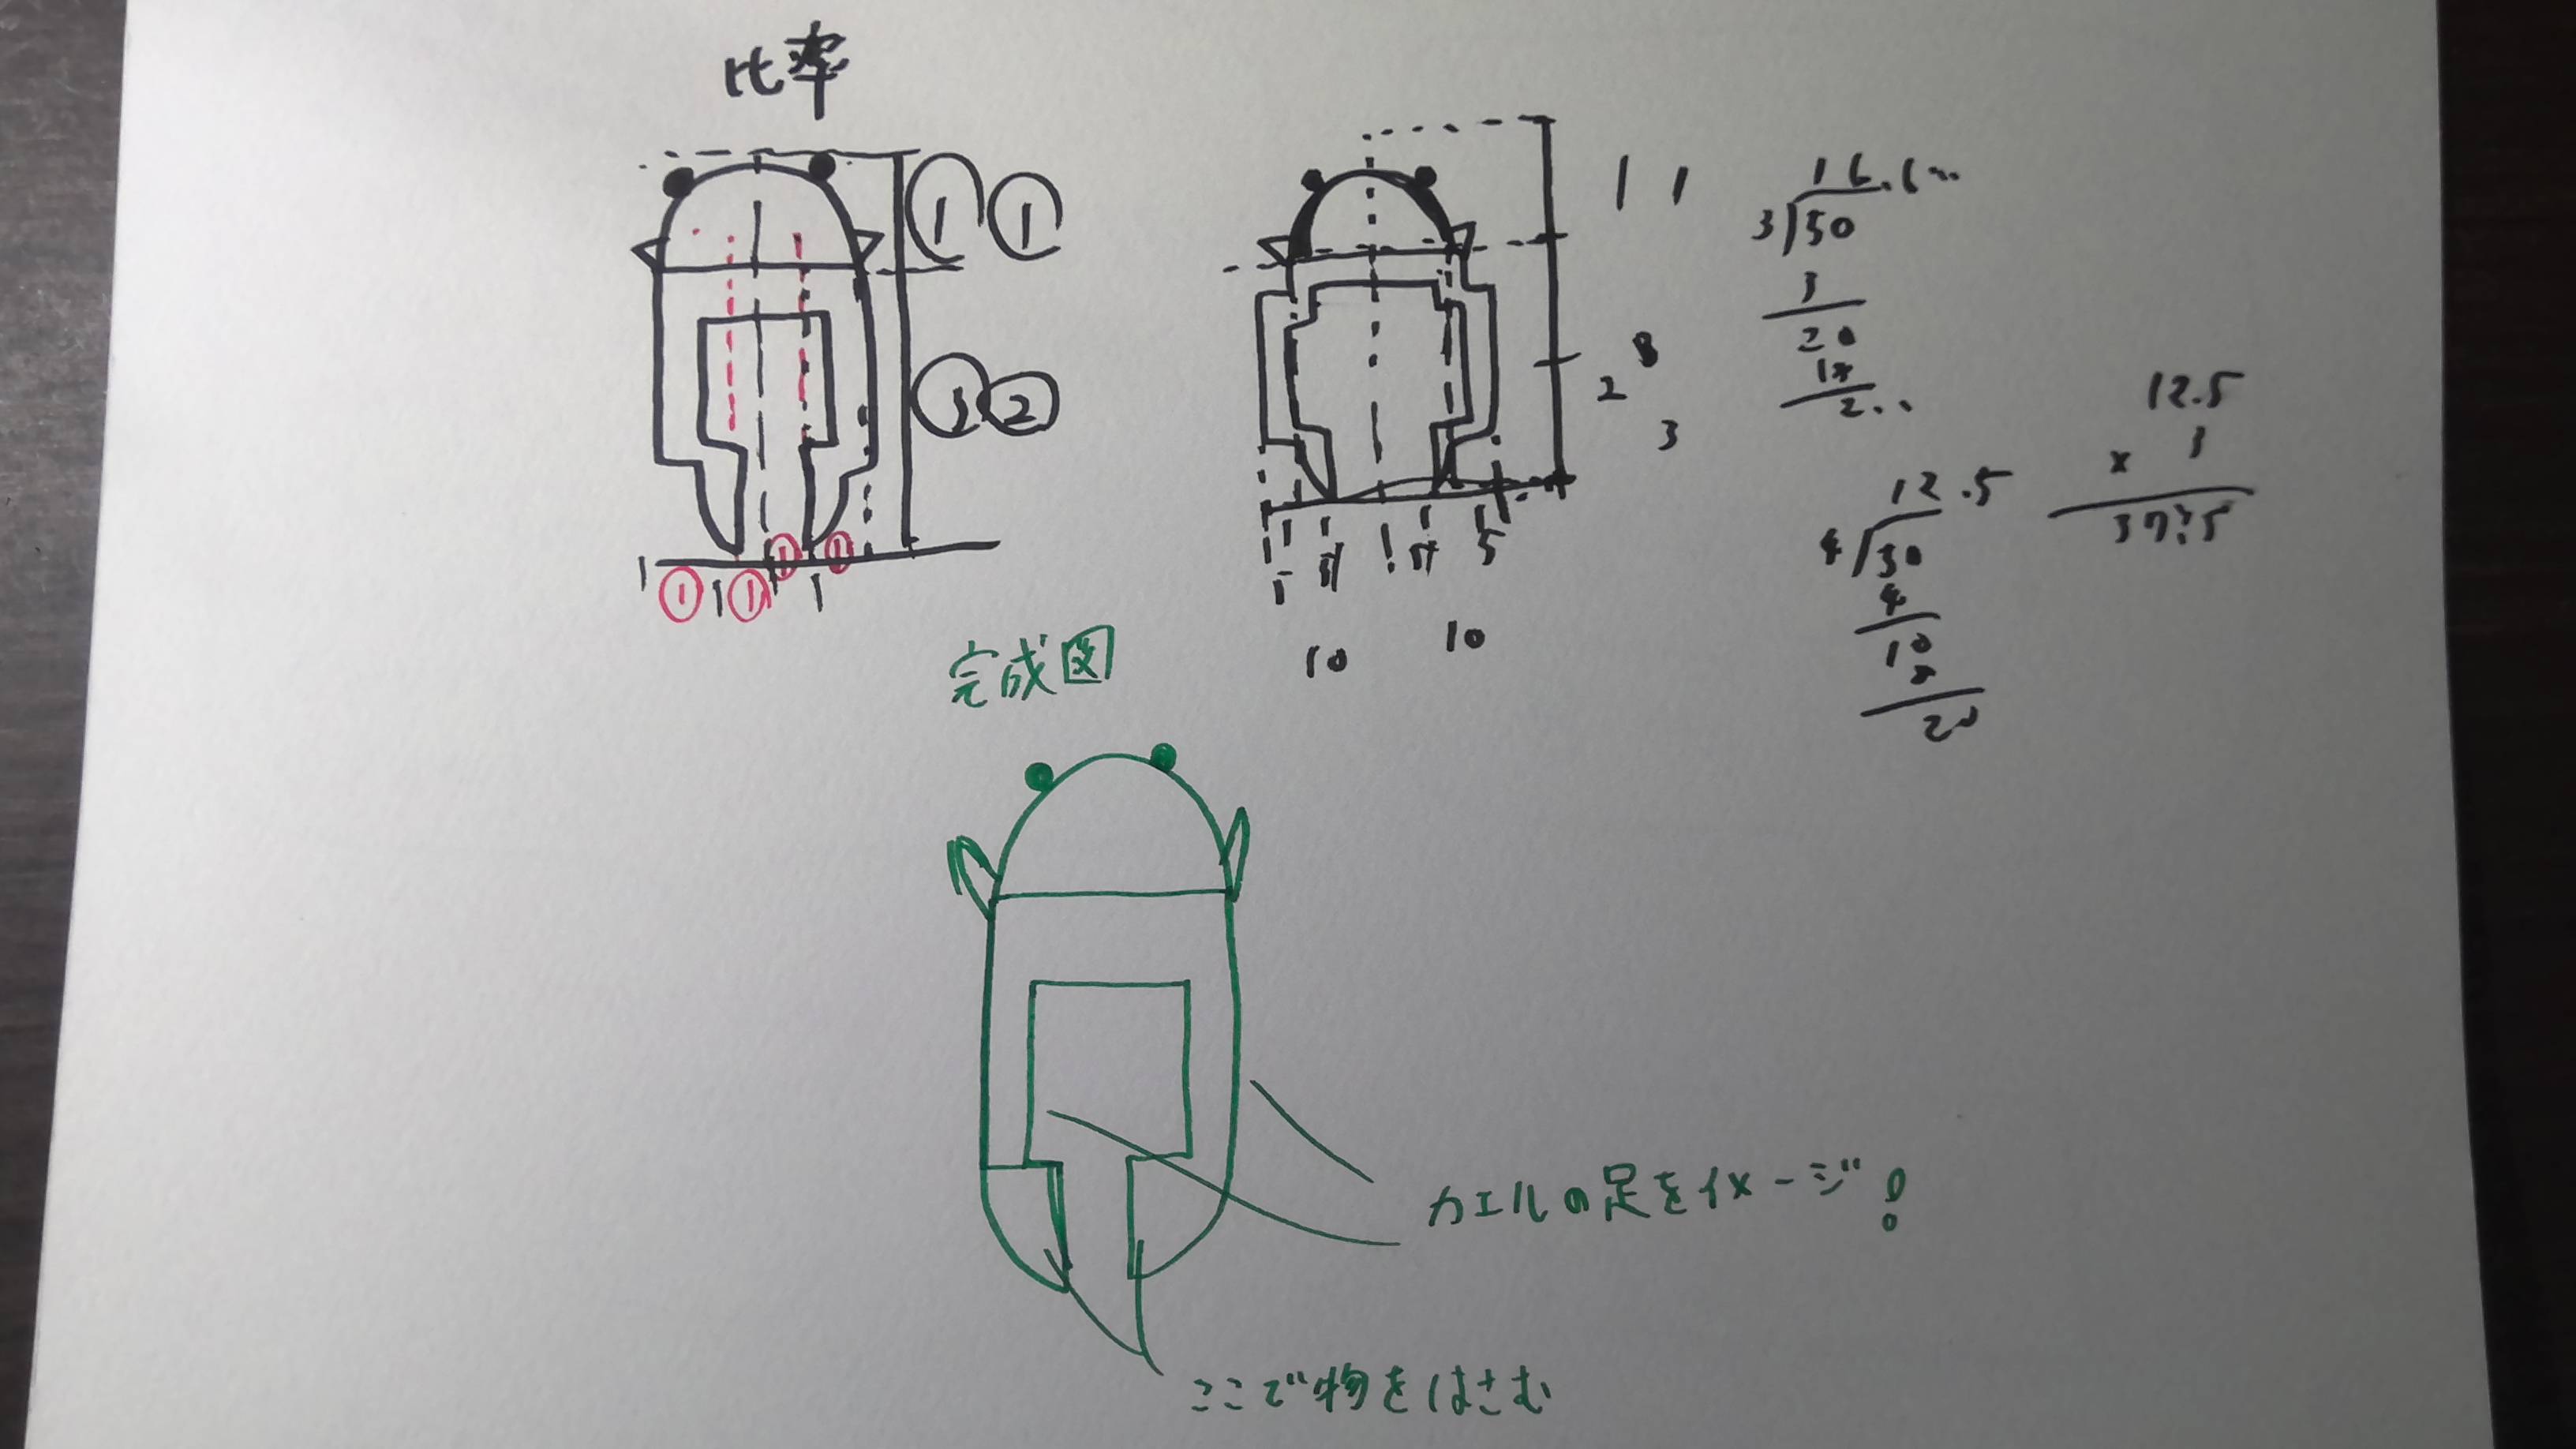 比率
① ①
③ ②
① ① ① ①
1 1
2 3
3
5 5
10 10
16.6...
3)50
3
20
18
2..
12.5
4)50
4
10
8
20
12.5
× 3
37.5
完成図
カエルの足をイメージ!
ここで物をはさむ